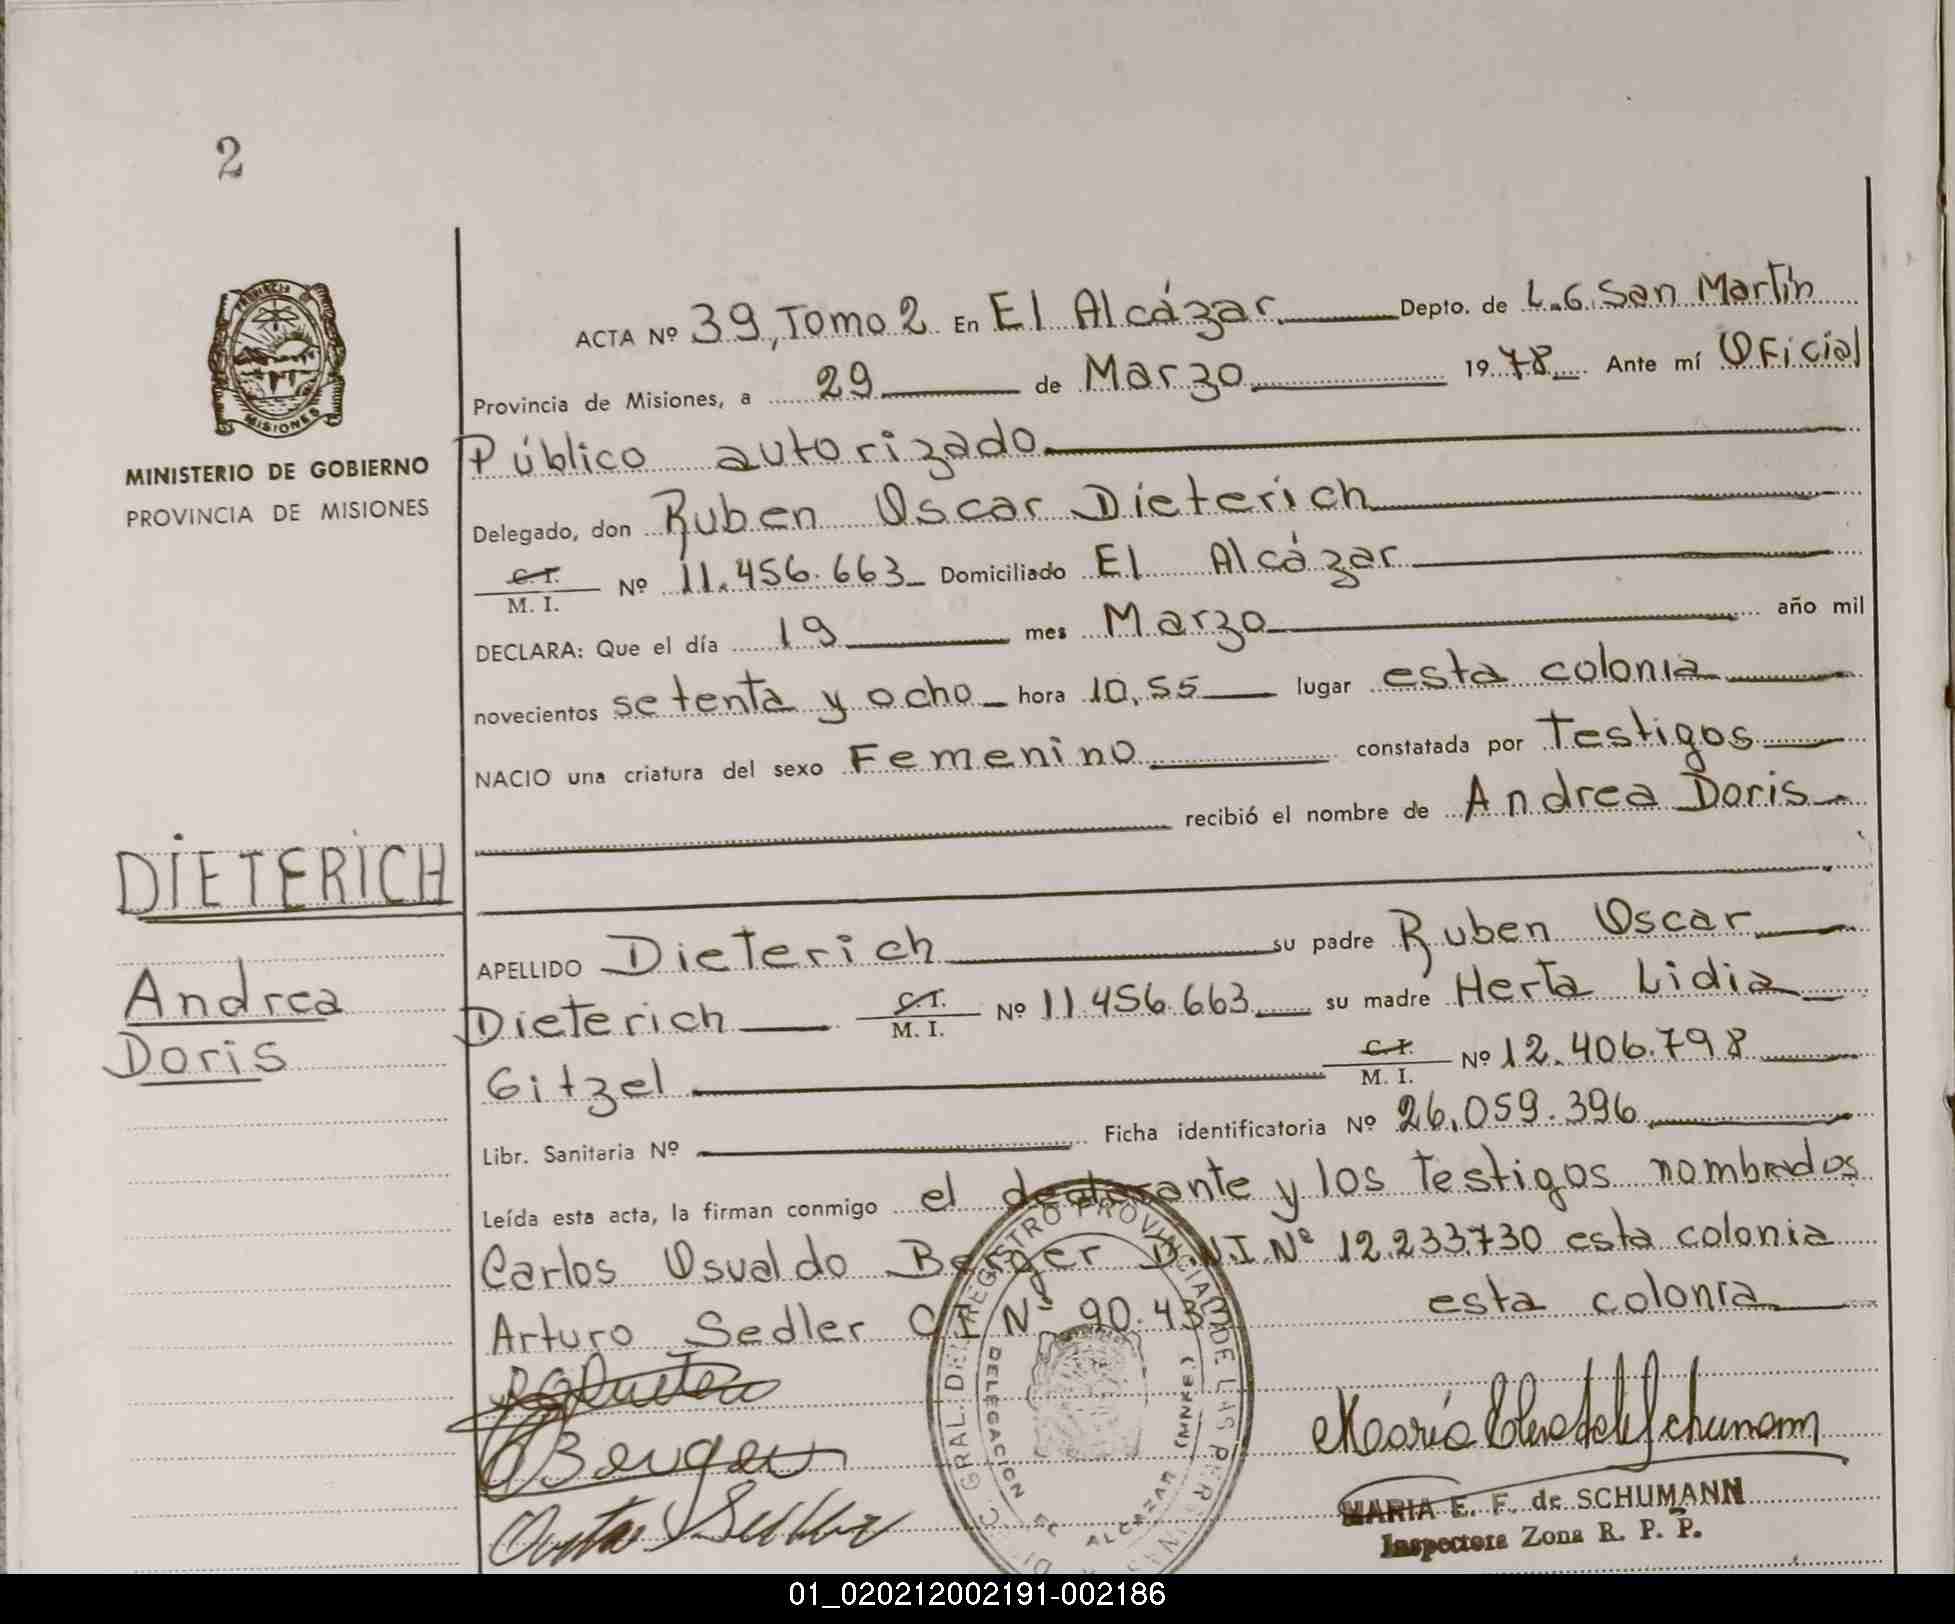 2
PROVINCIA DE
MISIONES
MINISTERIO DE GOBIERNO
PROVINCIA DE MISIONES
DIETERICH
Andrea
Doris
ACTA Nº 39, Tomo 2 En El Alcázar Depto. de L.G. San Martín
Provincia de Misiones, a 29 de Marzo 1978 Ante mí Oficial
Público autorizado
Delegado, don Ruben Oscar Dieterich
C.I.
M. I. Nº 11.456.663 Domiciliado El Alcázar
DECLARA: Que el día 19 mes Marzo año mil
novecientos setenta y ocho hora 10,55 lugar esta colonia
NACIO una criatura del sexo Femenino constatada por Testigos
recibió el nombre de Andrea Doris
APELLIDO Dieterich su padre Ruben Oscar
Dieterich C.I. M. I. Nº 11.456.663 su madre Herta Lidia
Gitzel C.I. M. I. Nº 12.406.798
Libr. Sanitaria Nº Ficha identificatoria Nº 26.059.396
Leída esta acta, la firman conmigo el declarante y los testigos nombrados
Carlos Osvaldo Berger D.N.I. Nº 12.233.730 esta colonia
Arturo Sedler CI Nº 90.433 esta colonia
Berger
DELEGACION EL ALCAZAR (MNES)
MARIA E. F. de SCHUMANN
Inspectora Zona R. P. P.
01_020212002191-002186